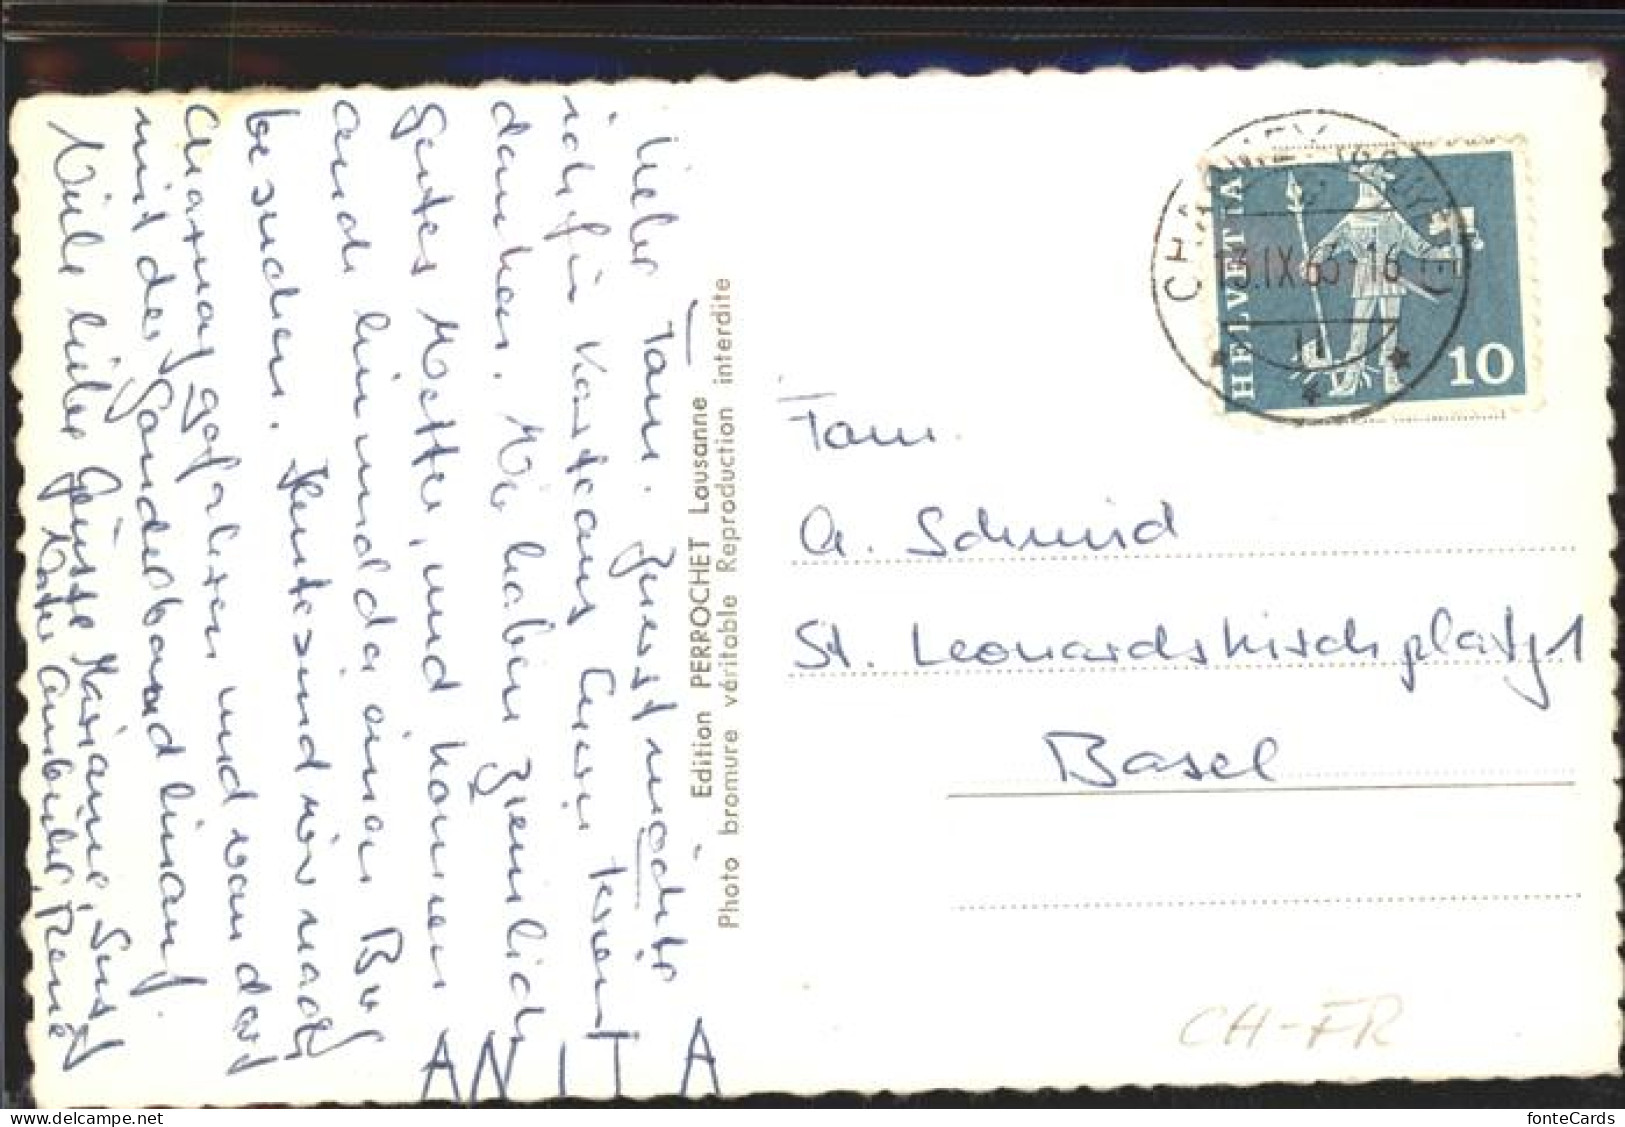 Lieber Tam. Zuerst möchte
ich für Karte aus Cusin
danken. Wir haben ziemlich
gutes Wetter, und können
auch hin und da einen Bu
besuchen. Heute sind wir nach
Charmay gefahren und von da
mit der Gondelbahn hinauf.
Viele liebe Grüsse Marianne, Susi
Vater
ANITA
Edition PERROCHET Lausanne
Photo bromure véritable Reproduction interdite
CHARMEY (GRUYÈRE)
13.IX.63-16
HELVETIA
10
Fam.
A. Schmid
St. Leonardskirchplatz 1
Basel
CH-FR
delcampe.net
fonteCards